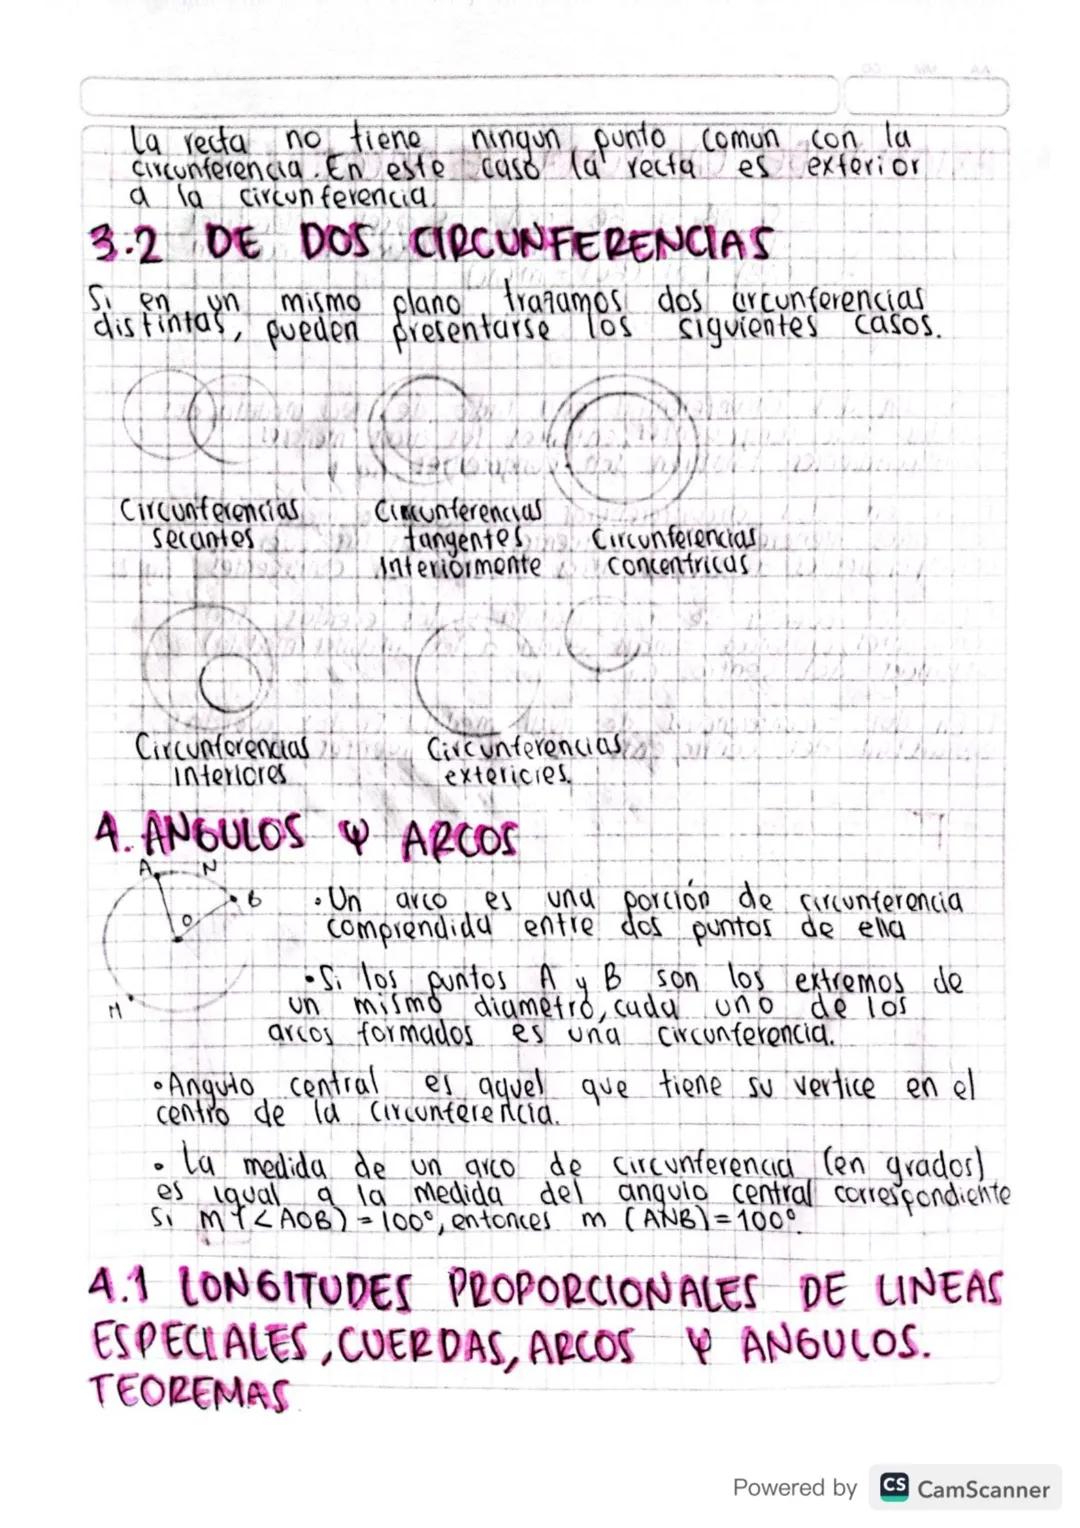 La recta no tiene ningun punto comun con la
circunferencia. En este caso la recta es exterior
a la circunferencia.
3.2 DE DOS CIRCUNFERENCIAS
Si en un mismo plano trazamos dos circunferencias
distintas, pueden presentarse los siguientes casos.
Circunferencias
secantes
Circunferencias
tangentes
Interiormente
Circunferencias
concentricas
Circunferencias
interiores
Circunferencias
exteriores.
4. ANGULOS Y ARCOS
A N
B
O
M
• Un arco es una porción de circunferencia
comprendida entre dos puntos de ella
• Si los puntos A y B son los extremos de
un mismo diametro, cada uno de los
arcos formados es una circunferencia.
• Angulo central es aquel que tiene su vertice en el
centro de la circunferencia.
• La medida de un arco de circunferencia (en grados)
es igual a la medida del angulo central correspondiente
Si m (<AOB) = 100°, entonces m (ANB) = 100°
4.1 LONGITUDES PROPORCIONALES DE LINEAS
ESPECIALES, CUERDAS, ARCOS Y ANGULOS.
TEOREMAS
Powered by CS CamScanner